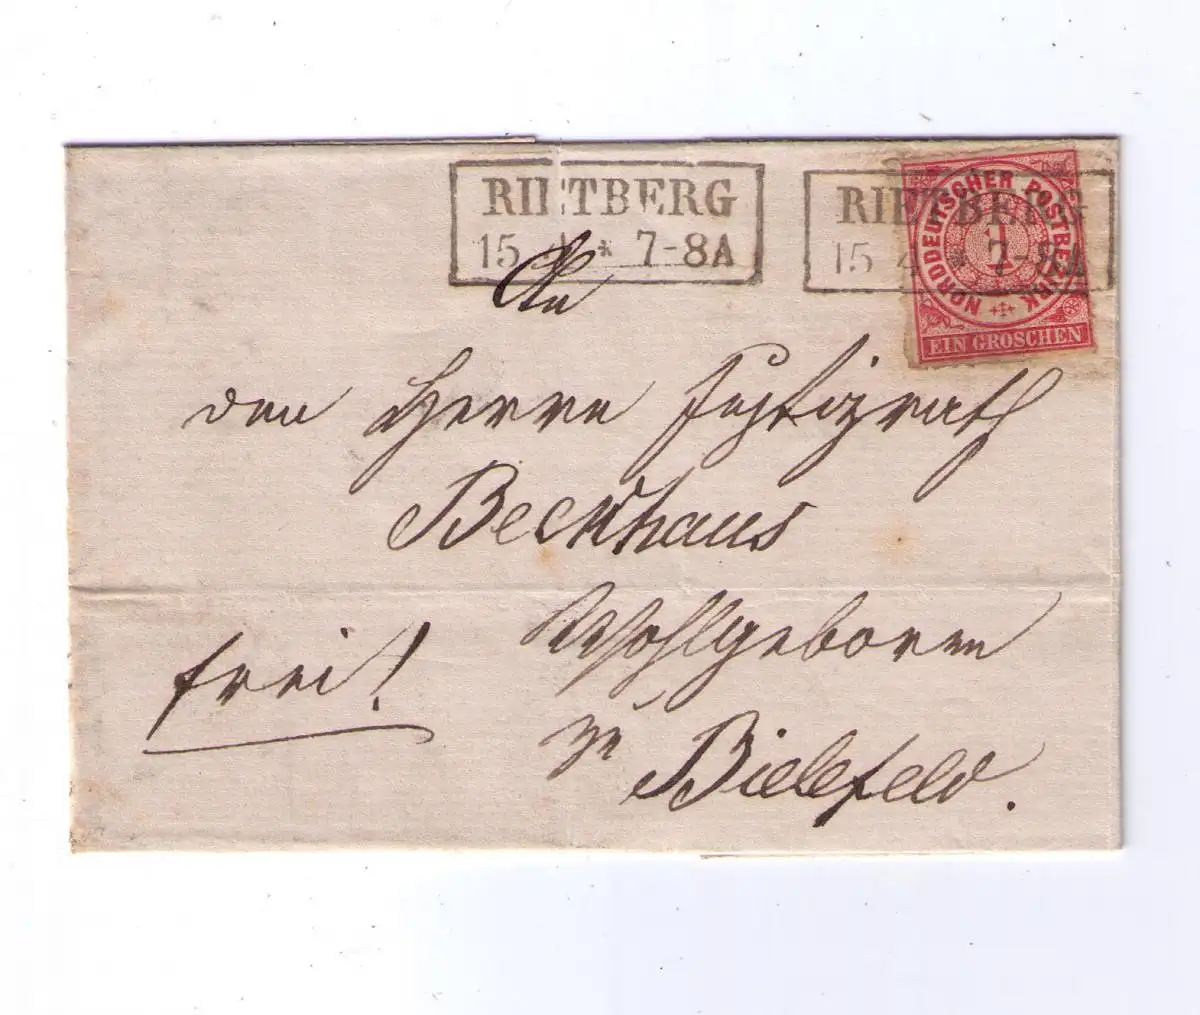 RIETBERG
15 4 * 7-8A
RIETBERG
15 4 * 7-8A
NORDDEUTSCHER POSTBEZIRK
1
EIN GROSCHEN
An
den Herrn Justizrath
Beckhaus
Wohlgeboren
frei!
zu
Bielefeld.